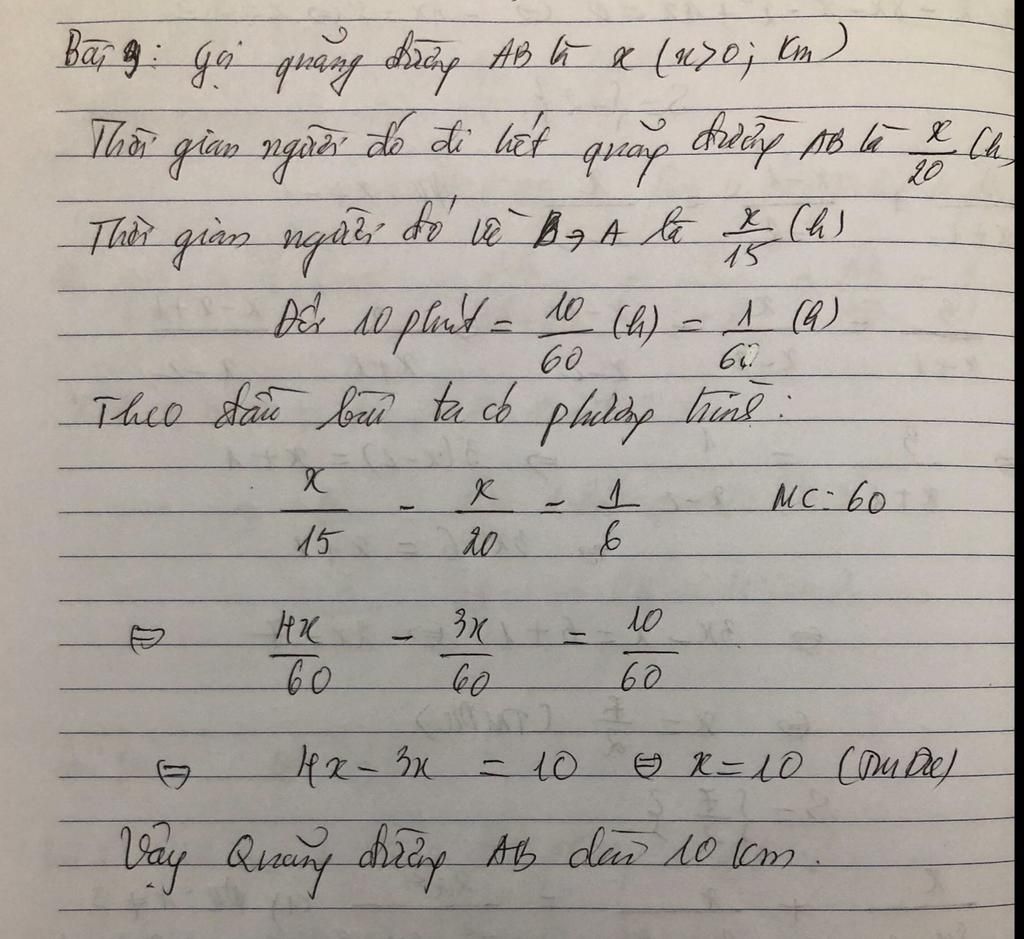 Bài 9: Gọi quãng đường AB là x (x>0; km)
Thời gian người đó đi hết quãng đường AB là x/20 (h)
Thời gian người đó về B→A là x/15 (h)
Đổi 10 phút = 10/60 (h) = 1/60 (h)
Theo đầu bài ta có phương trình:
x/15 - x/20 = 1/6 MC: 60
⇔ 4x/60 - 3x/60 = 10/60
⇔ 4x - 3x = 10 ⇔ x = 10 (TMĐK)
Vậy Quãng đường AB dài 10 km.